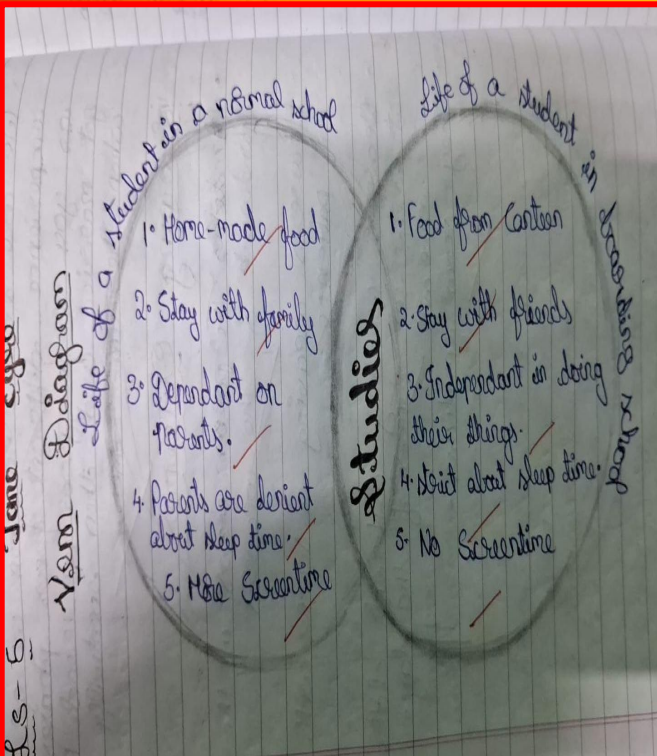 Ls-5 Jane Eyre
Venn Diagram
Life of a student in a normal school
1. Home-made food
2. Stay with family
3. Dependant on
parents.
4. Parents are lenient
about sleep time.
5. More Screentime
Studies
Life of a student in boarding school
1. Food from Canteen
2. Stay with friends
3. Independant in doing
their things.
4. Strict about sleep time.
5. No Screentime